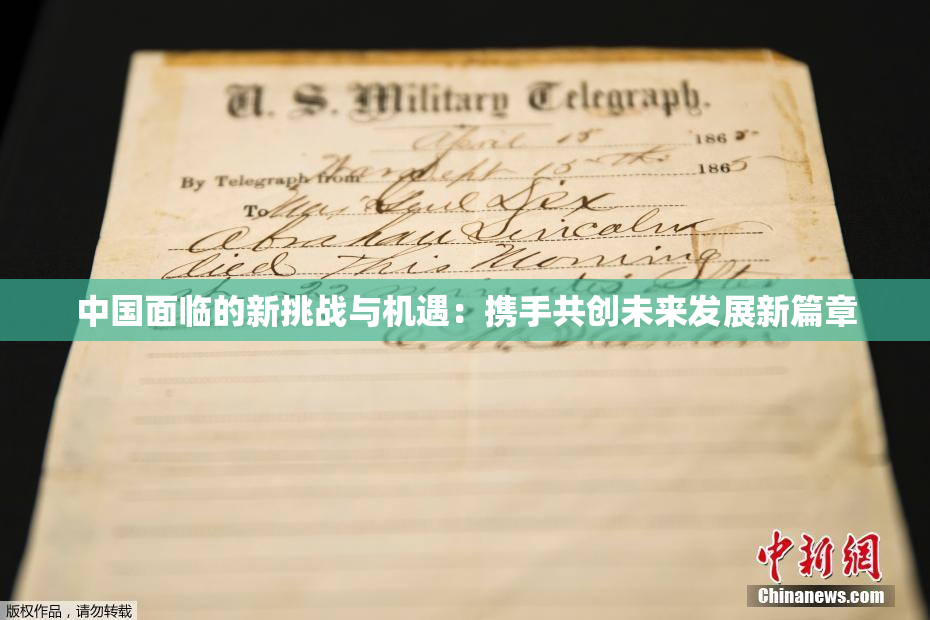 U. S. Military Telegraph.
April 15 1865
By Telegraph from War Dept 15th 1865
To Maj Genl Dix
Abraham Lincoln
died This Morning
22 minutes after
中国面临的新挑战与机遇：携手共创未来发展新篇章
E. M. Stanton
中新网
Chinanews.com
版权作品，请勿转载